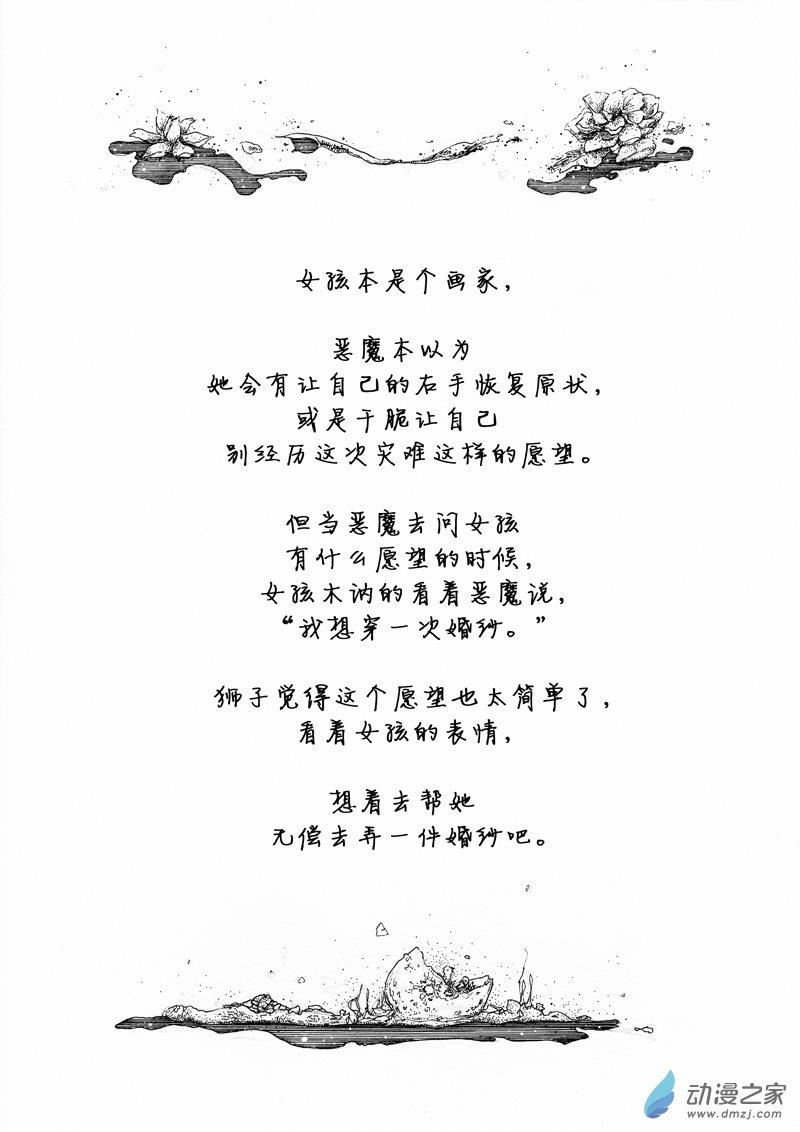 女孩本是个画家，
恶魔本以为
她会有让自己的右手恢复原状，
或是干脆让自己
别经历这次灾难这样的愿望。
但当恶魔去问女孩
有什么愿望的时候，
女孩木讷的看着恶魔说，
“我想穿一次婚纱。”
狮子觉得这个愿望也太简单了，
看着女孩的表情，
想着去帮她
无偿去弄一件婚纱吧。
动漫之家
www.dmzj.com